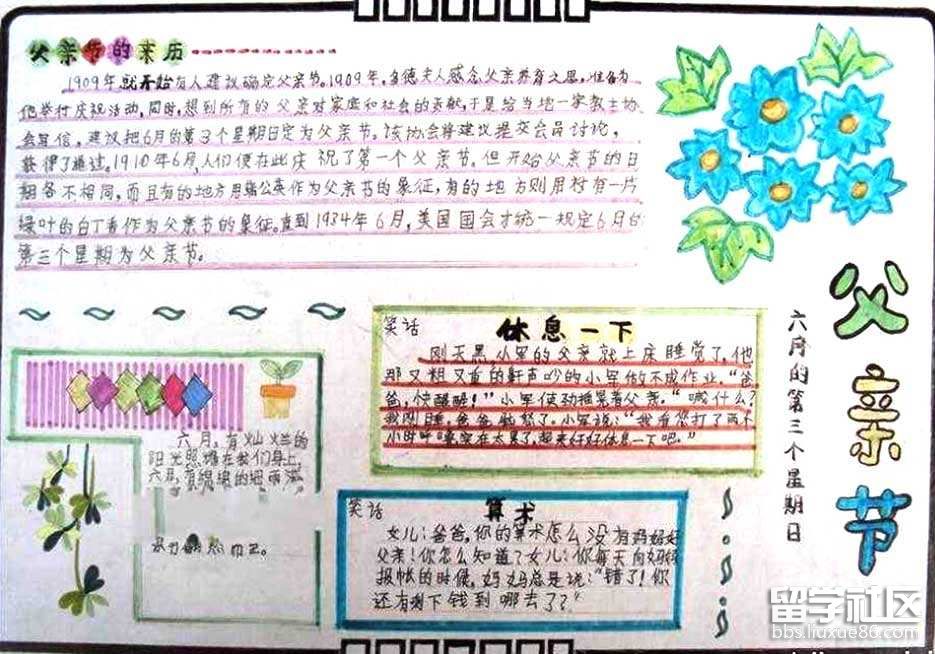 父亲节的来历
1909年就开始有人建议确定父亲节。1909年,多德夫人感念父亲养育之恩,准备为
他举行庆祝活动,同时,想到所有的父亲对家庭和社会的贡献,于是给当地一家教士协
会写信,建议把6月的第3个星期日定为父亲节。该协会将建议提交会员讨论,
获得了通过。1910年6月,人们便在此庆祝了第一个父亲节。但开始父亲节的日
期各不相同,而且有的地方用蒲公英作为父亲节的象征,有的地方则用衬有一片
绿叶的白丁香作为父亲节的象征。直到1934年6月,美国国会才统一规定6月的
第三个星期为父亲节。
父亲节
六月的第三个星期日
笑话
休息一下
刚天黑,小军的父亲就上床睡觉了,他
那又粗又重的鼾声吵的小军做不成作业。“爸
爸,快醒醒!”小军使劲摇晃着父亲。“喊什么?
我刚睡,爸爸
了。小军说:“我看您打了两个
小时呼噜,实在太累了,起来好好休息一下吧。”
六月,有灿烂的
阳光照耀在我们身上,
六月,有绵绵的细雨
笑话
算术
女儿:爸爸,你的算术怎么没有妈妈好
父亲!你怎么知道?女儿:你每天向妈妈
报帐的时候,妈妈总是说:“错了!你
还有剩下钱到哪去了?”
留学社区
bbs.liuxue86.com